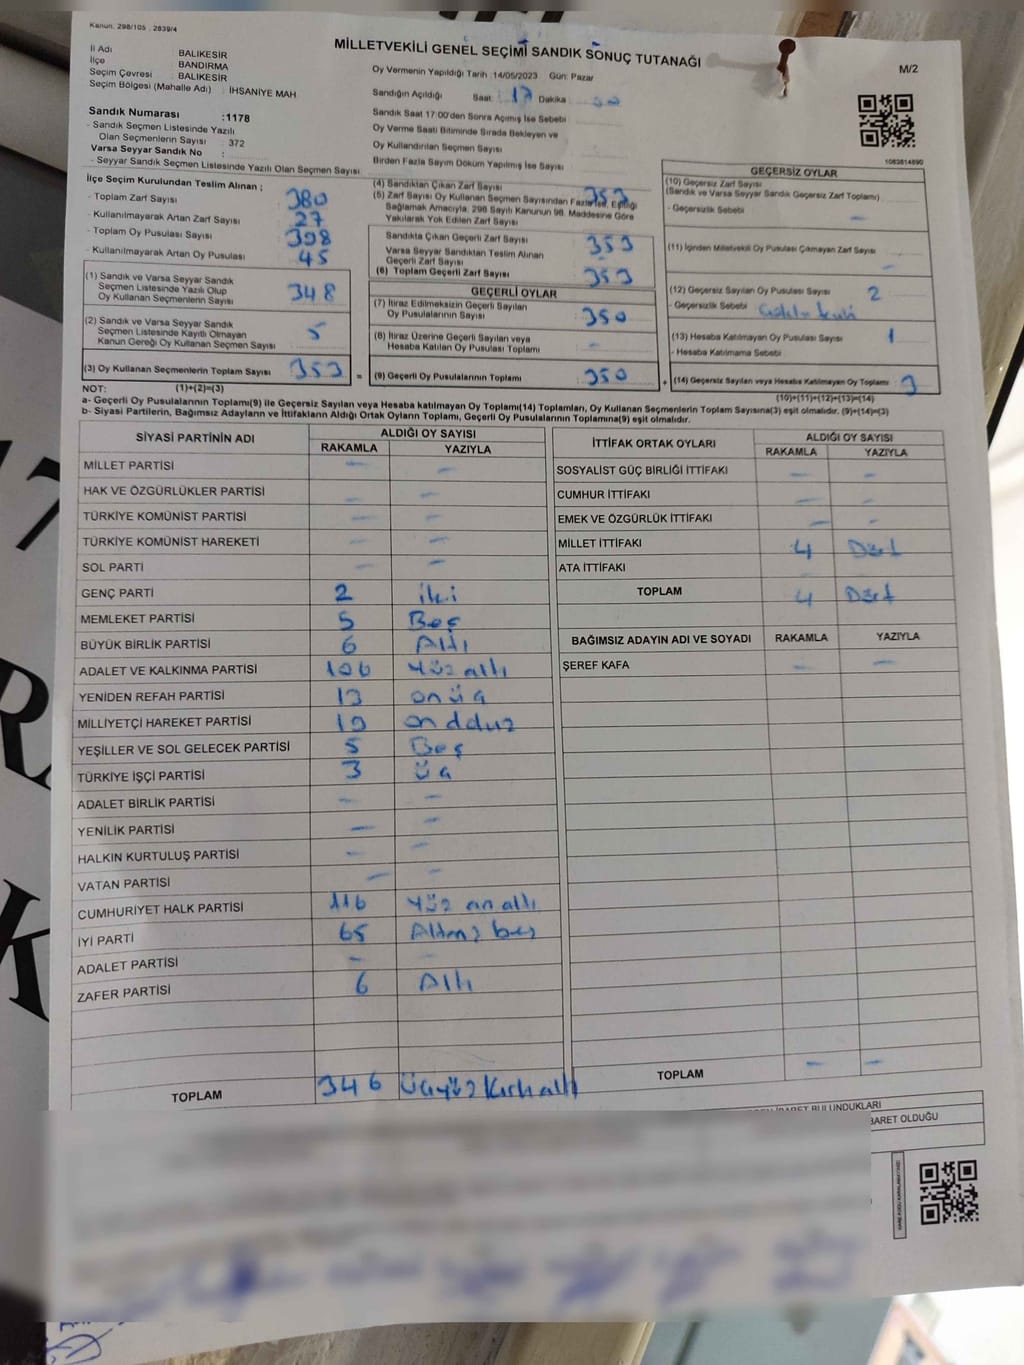 Kanun. 298/105 . 2839/4
MİLLETVEKİLİ GENEL SEÇİMİ SANDIK SONUÇ TUTANAĞI
M/2
İl Adı BALIKESİR
İlçe BANDIRMA
Seçim Çevresi : BALIKESİR
Seçim Bölgesi (Mahalle Adı) : İHSANİYE MAH
Sandık Numarası :1178
- Sandık Seçmen Listesinde Yazılı
Olan Seçmenlerin Sayısı : 372
Varsa Seyyar Sandık No :
- Seyyar Sandık Seçmen Listesinde Yazılı Olan Seçmen Sayısı
Oy Vermenin Yapıldığı Tarih :14/05/2023 Gün: Pazar
Sandığın Açıldığı Saat: 17 Dakika
Sandık Saat 17:00'den Sonra Açımış İse Sebebi
Oy Verme Saati Bitiminde Sırada Bekleyen ve
Oy Kullandırılan Seçmen Sayısı
Birden Fazla Sayım Döküm Yapılmış İse Sayısı
1083814690
İlçe Seçim Kurulundan Teslim Alınan ;
- Toplam Zarf Sayısı 380
- Kullanılmayarak Artan Zarf Sayısı 27
- Toplam Oy Pusulası Sayısı 398
- Kullanılmayarak Artan Oy Pusulası 45
(1) Sandık ve Varsa Seyyar Sandık
Seçmen Listesinde Yazılı Olup
Oy Kullanan Seçmenlerin Sayısı 348
(2) Sandık ve Varsa Seyyar Sandık
Seçmen Listesinde Kayıtlı Olmayan
Kanun Gereği Oy Kullanan Seçmen Sayısı 5
(3) Oy Kullanan Seçmenlerin Toplam Sayısı 353 =
(4) Sandıktan Çıkan Zarf Sayısı 353
(5) Zarf Sayısı Oy Kullanan Seçmen Sayısından Fazla İse, Eşitliği
Sağlamak Amacıyla, 298 Sayılı Kanunun 98. Maddesine Göre
Yakılarak Yok Edilen Zarf Sayısı
Sandıkta Çıkan Geçerli Zarf Sayısı 353
Varsa Seyyar Sandıktan Teslim Alınan
Geçerli Zarf Sayısı -
(6) Toplam Geçerli Zarf Sayısı 353
GEÇERLİ OYLAR
(7) İtiraz Edilmeksizin Geçerli Sayılan
Oy Pusulalarının Sayısı 350
(8) İtiraz Üzerine Geçerli Sayılan veya
Hesaba Katılan Oy Pusulası Toplamı -
(9) Geçerli Oy Pusulalarının Toplamı 350 +
GEÇERSİZ OYLAR
(10) Geçersiz Zarf Sayısı
(Sandık ve Varsa Seyyar Sandık Geçersiz Zarf Toplamı)
- Geçersizlik Sebebi -
(11) İçinden Milletvekili Oy Pusulası Çıkmayan Zarf Sayısı -
(12) Geçersiz Sayılan Oy Pusulası Sayısı 2
- Geçersizlik Sebebi
(13) Hesaba Katılmayan Oy Pusulası Sayısı 1
- Hesaba Katılmama Sebebi
(14) Geçersiz Sayılan veya Hesaba Katılmayan Oy Toplamı 3
NOT: (1)+(2)=(3) (10)+(11)+(12)+(13)=(14)
a- Geçerli Oy Pusulalarının Toplamı(9) ile Geçersiz Sayılan veya Hesaba katılmayan Oy Toplamı(14) Toplamları, Oy Kullanan Seçmenlerin Toplam Sayısına(3) eşit olmalıdır. (9)+(14)=(3)
b- Siyasi Partilerin, Bağımsız Adayların ve İttifakların Aldığı Ortak Oyların Toplamı, Geçerli Oy Pusulalarının Toplamına(9) eşit olmalıdır.
SİYASİ PARTİNİN ADI ALDIĞI OY SAYISI
RAKAMLA YAZIYLA
MİLLET PARTİSİ - -
HAK VE ÖZGÜRLÜKLER PARTİSİ - -
TÜRKİYE KOMÜNİST PARTİSİ - -
TÜRKİYE KOMÜNİST HAREKETİ - -
SOL PARTİ - -
GENÇ PARTİ 2 iki
MEMLEKET PARTİSİ 5 Beş
BÜYÜK BİRLİK PARTİSİ 6 Altı
ADALET VE KALKINMA PARTİSİ 106 Yüz altı
YENİDEN REFAH PARTİSİ 13 on üç
MİLLİYETÇİ HAREKET PARTİSİ 19 on dokuz
YEŞİLLER VE SOL GELECEK PARTİSİ 5 Beş
TÜRKİYE İŞÇİ PARTİSİ 3 üç
ADALET BİRLİK PARTİSİ - -
YENİLİK PARTİSİ - -
HALKIN KURTULUŞ PARTİSİ - -
VATAN PARTİSİ - -
CUMHURİYET HALK PARTİSİ 116 Yüz on altı
İYİ PARTİ 65 Altmış beş
ADALET PARTİSİ - -
ZAFER PARTİSİ 6 Altı
TOPLAM 346 üçyüz kırk altı
İTTİFAK ORTAK OYLARI ALDIĞI OY SAYISI
RAKAMLA YAZIYLA
SOSYALİST GÜÇ BİRLİĞİ İTTİFAKI - -
CUMHUR İTTİFAKI - -
EMEK VE ÖZGÜRLÜK İTTİFAKI - -
MİLLET İTTİFAKI 4 Dört
ATA İTTİFAKI
TOPLAM 4 Dört
BAĞIMSIZ ADAYIN ADI VE SOYADI RAKAMLA YAZIYLA
ŞEREF KAFA - -
TOPLAM - -
BULUNDUKLARI
BARET OLDUĞU